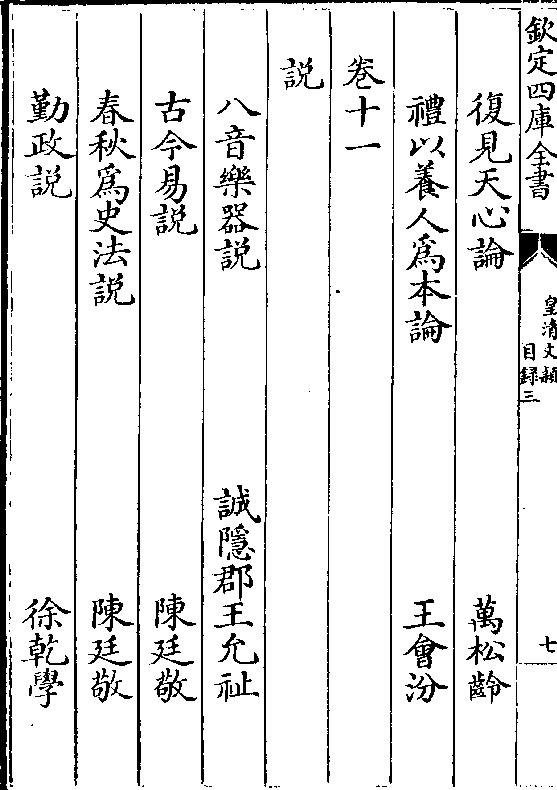 欽定四庫全書
皇清文穎
目録三
七
復見天心論 萬松齡
禮以養人為本論 王會汾
卷十一
説
八音樂器説 諴隱郡王允祉
古今易説 陳廷敬
春秋為史法説 陳廷敬
勤政説 徐乾學